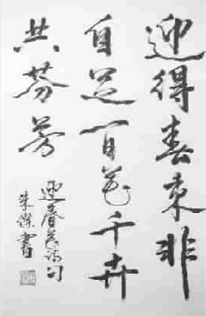 迎得春来非
自足百花千卉
共芬芳
迎春花诗句
書